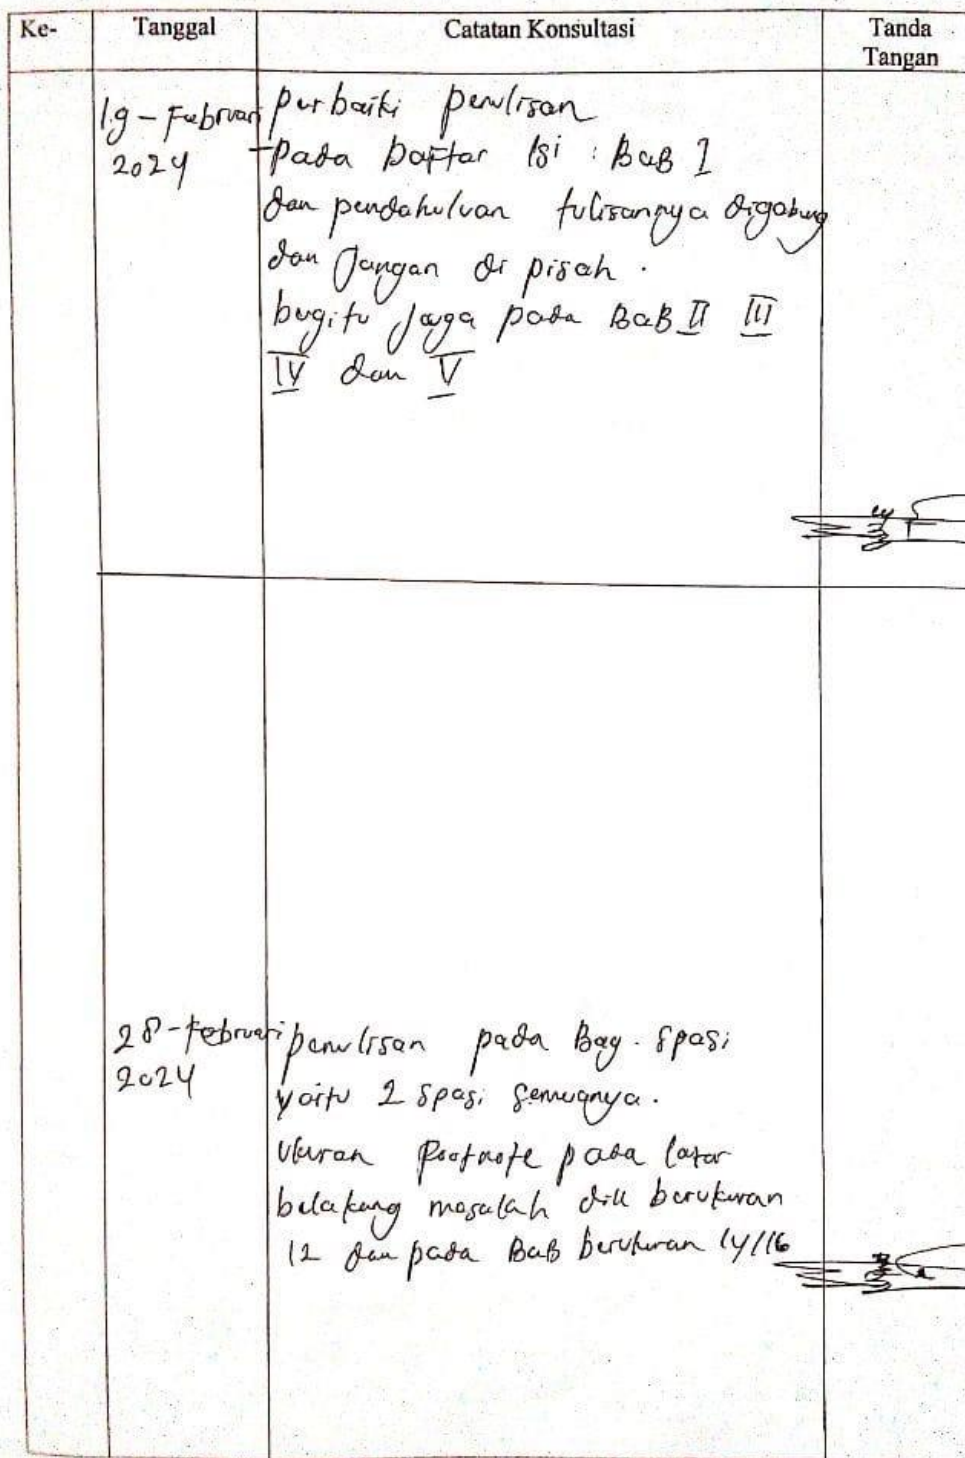 Ke-
Tanggal
Catatan Konsultasi
Tanda
Tangan
19 - Februari
2024
perbaiki penulisan
- pada Daftar Isi : BAB I
dan pendahuluan tulisannya digabung
dan jangan di pisah.
begitu juga pada BAB II III
IV dan V
28 - februari
2024
penulisan pada Bag. spasi
yaitu 2 spasi semuanya.
Ukuran footnote pada latar
belakang masalah dll berukuran
12 dan pada BAB berukuran 14/16